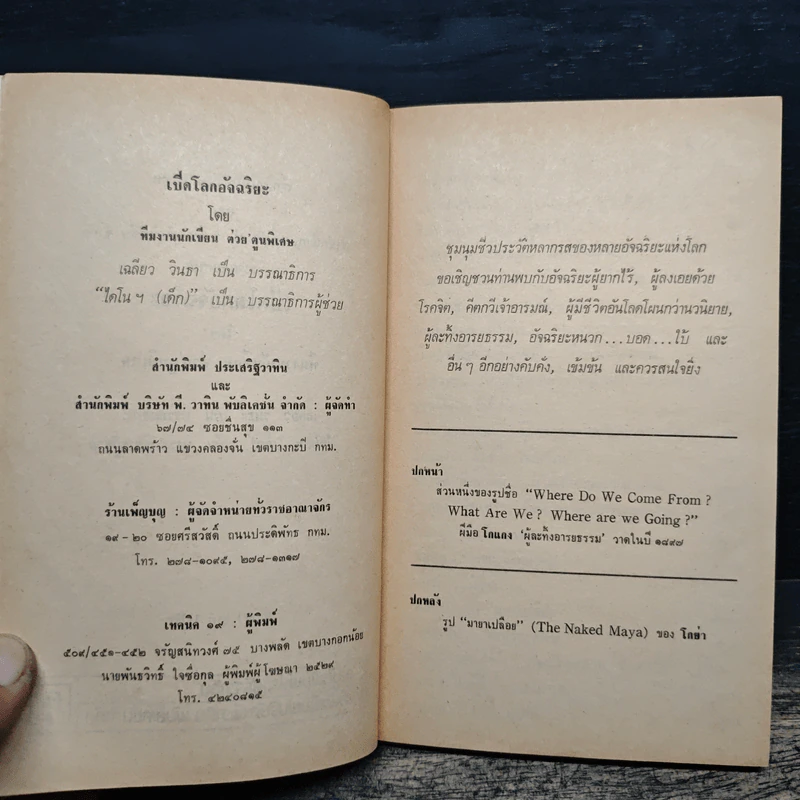 เปิดโลกอัจฉริยะ
โดย
ทีมงานนักเขียน ต่วย'ตูนพิเศษ
เฉลียว วินธา เป็น บรรณาธิการ
"ไดโน ฯ (เด็ก)" เป็น บรรณาธิการผู้ช่วย
สำนักพิมพ์ ประเสริฐวาทิน
และ
สำนักพิมพ์ บริษัท พี. วาทิน พับลิเคชั่น จำกัด : ผู้จัดทำ
๖๗/๗๔ ซอยชื่นสุข ๑๑๓
ถนนลาดพร้าว แขวงคลองจั่น เขตบางกะปิ กทม.
ร้านเพ็ญบุญ : ผู้จัดจำหน่ายทั่วราชอาณาจักร
๑๙ - ๒๐ ซอยศรีสวัสดิ์ ถนนประดิพัทธ กทม.
โทร. ๒๗๘-๑๐๙๕, ๒๗๘-๑๓๑๗
เทคนิค ๑๙ : ผู้พิมพ์
๕๐๙/๔๕๑-๔๕๒ จรัญสนิทวงศ์ ๗๕ บางพลัด เขตบางกอกน้อย
นายพันธวิทธิ์ ใจซื่อกุล ผู้พิมพ์ผู้โฆษณา ๒๕๒๙
โทร. ๔๒๔๐๘๑๕
ชุมนุมชีวประวัติหลากรสของหลายอัจฉริยะแห่งโลก
ขอเชิญชวนท่านพบกับอัจฉริยะผู้ยากไร้, ผู้ลงเอยด้วย
โรคจิต, คีตกวีเจ้าอารมณ์, ผู้มีชีวิตอันโลดโผนกว่านวนิยาย,
ผู้ละทิ้งอารยธรรม, อัจฉริยะหนวก...บอด...ใบ้ และ
อื่น ๆ อีกอย่างคับคั่ง, เข้มข้น และควรสนใจยิ่ง
ปกหน้า
ส่วนหนึ่งของรูปชื่อ "Where Do We Come From ?
What Are We ? Where are we Going ?"
ฝีมือ โกแกง 'ผู้ละทิ้งอารยธรรม' วาดในปี ๑๘๙๗
ปกหลัง
รูป "มายาเปลือย" (The Naked Maya) ของ โกย่า